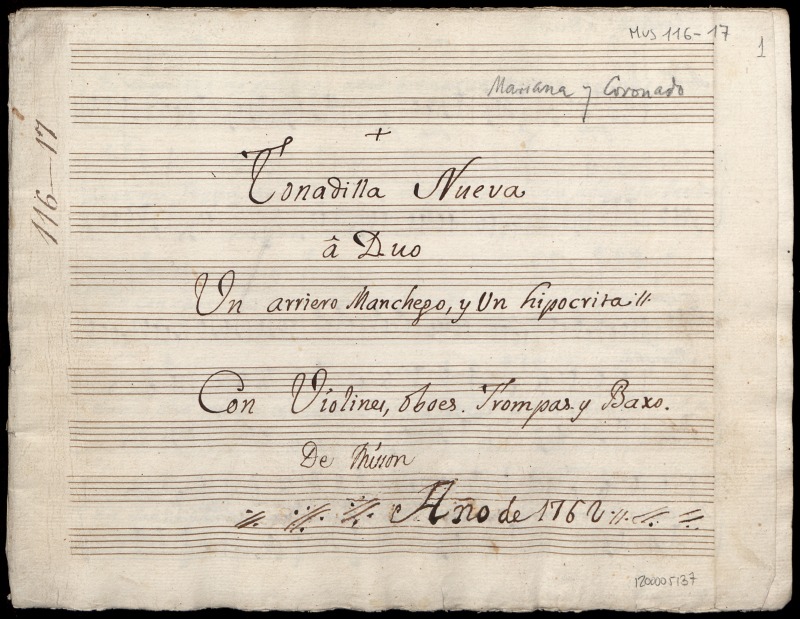 MUS 116-17
1
Mariana y Coronado
116-17
+
Tonadilla Nueva
â Duo
Un arriero Manchego, y Un hipocrita //.
Con Violines, oboes. Trompas. y Baxo.
De Misson
Año de 1762
1200005137